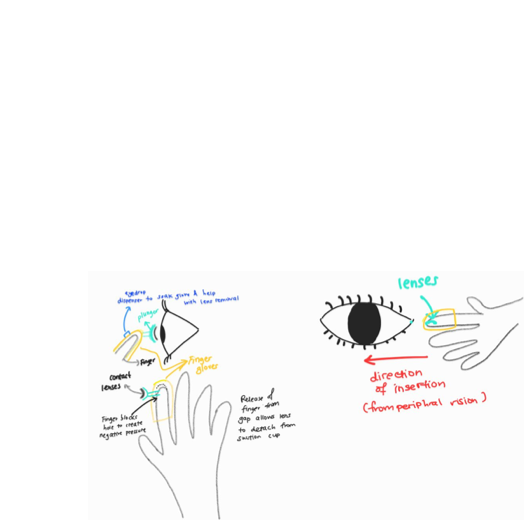 eyedrop
dispenser to soak glove & help
with lens removal
plunger
finger
Finger
gloves
contact
lenses
Finger blocks
hole to create
negative pressure
Release of
finger from
gap allows lens
to detach from
suction cup
lenses
direction
of insertion
(from periphral vision)